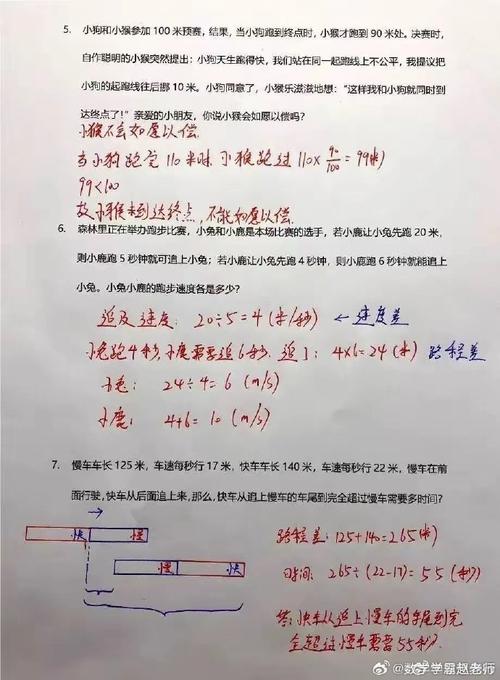 5. 小狗和小猴参加 100 米预赛，结果，当小狗跑到终点时，小猴才跑到 90 米处。决赛时，
自作聪明的小猴突然提出：小狗天生跑得快，我们站在同一起跑线上不公平，我提议把
小狗的起跑线往后挪 10 米。小狗同意了，小猴乐滋滋地想：“这样我和小狗就同时到
达终点了！”亲爱的小朋友，你说小猴会如愿以偿吗？
小猴不会如愿以偿.
当小狗跑完110米时，小猴跑过 110×90/100=99(米)
99<100
故小猴未到达终点，不能如愿以偿.
6. 森林里正在举办跑步比赛，小兔和小鹿是本场比赛的选手，若小鹿让小兔先跑 20 米，
则小鹿跑 5 秒钟就可追上小兔；若小鹿让小兔先跑 4 秒钟，则小鹿跑 6 秒钟就能追上
小兔。小兔小鹿的跑步速度各是多少？
追及速度：20÷5=4(米/秒) ←速度差
小兔跑4秒，小鹿需要追6秒，追了：4×6=24(米) 路程差
小兔：24÷4=6 (m/s)
小鹿：4+6=10 (m/s)
7. 慢车车长 125 米，车速每秒行 17 米，快车车长 140 米，车速每秒行 22 米，慢车在前
面行驶，快车从后面追上来，那么，快车从追上慢车的车尾到完全超过慢车需要多时间？
快 慢
慢 快
路程差：125+140=265(米)
时间：265÷(22-17)=55(秒)
答：快车从追上慢车的车尾到完
全超过慢车需要55秒？
@数学学霸赵老师